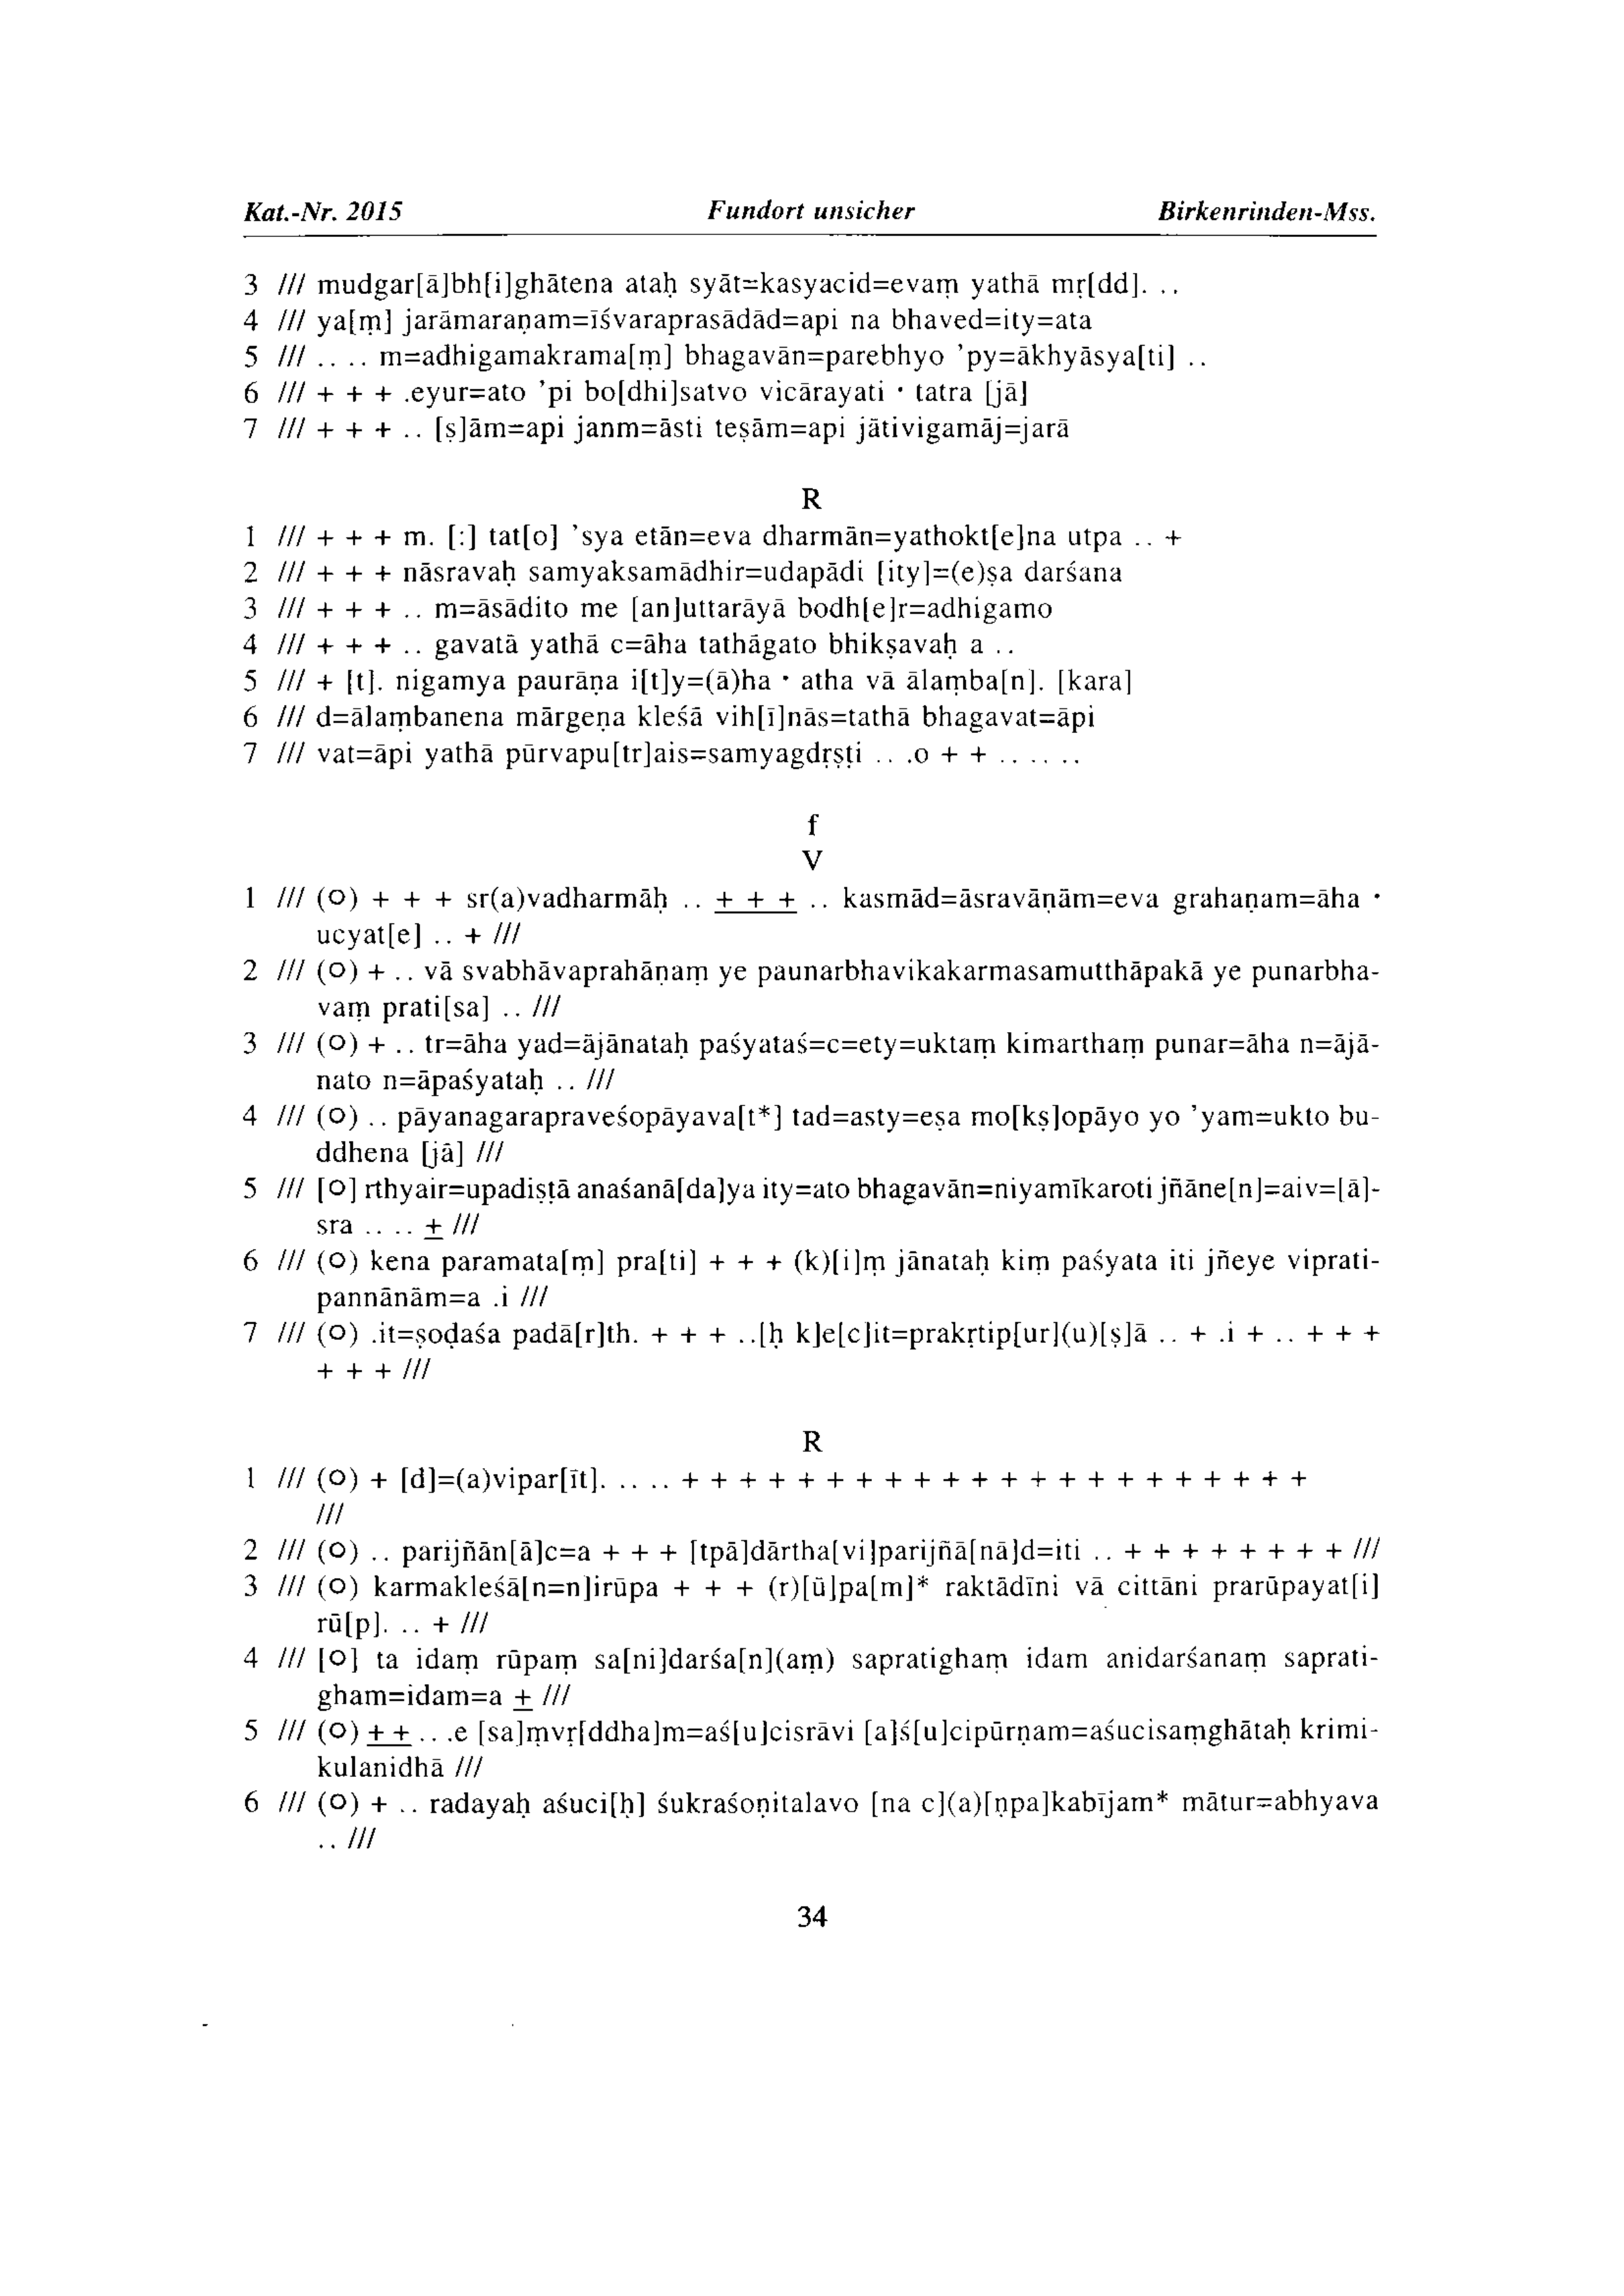 Kat.-Nr. 2015 Fundort unsicher Birkenrinden-Mss.
3 /// mudgar[ā]bh[i]ghātena ataḥ syāt=kasyacid=evaṃ yathā mṛ[dd]. ..
4 /// ya[ṃ] jarāmaraṇam=īśvaraprasādād=api na bhaved=ity=ata
5 /// .. .. m=adhigamakrama[ṃ] bhagavān=parebhyo ’py=ākhyāsya[ti] ..
6 /// + + + .eyur=ato ’pi bo[dhi]satvo vicārayati · tatra [jā]
7 /// + + + .. [ṣ]ām=api janm=āsti teṣām=api jātivigamāj=jarā
R
1 /// + + + m. [:] tat[o] ’sya etān=eva dharmān=yathokt[e]na utpa .. +
2 /// + + + nāsravaḥ samyaksamādhir=udapādi [ity]=(e)ṣa darśana
3 /// + + + .. m=āsādito me [an]uttarāyā bodh[e]r=adhigamo
4 /// + + + .. gavatā yathā c=āha tathāgato bhikṣavaḥ a ..
5 /// + [t]. nigamya paurāṇa i[t]y=(ā)ha · atha vā ālaṃba[n]. [kara]
6 /// d=ālaṃbanena mārgeṇa kleśā vih[ī]nās=tathā bhagavat=āpi
7 /// vat=āpi yathā pūrvapu[tr]ais=samyagdṛṣṭi .. .o + + .. .. ..
f
V
1 /// (○) + + + sr(a)vadharmāḥ .. + + + .. kasmād=āsravāṇām=eva grahaṇam=āha ·
ucyat[e] .. + ///
2 /// (○) + .. vā svabhāvaprahāṇaṃ ye paunarbhavikakarmasamutthāpakā ye punarbha-
vaṃ prati[sa] .. ///
3 /// (○) + .. tr=āha yad=ājānataḥ paśyataś=c=ety=uktaṃ kimarthaṃ punar=āha n=ājā-
nato n=āpaśyataḥ .. ///
4 /// (○) .. pāyanagarapraveśopāyava[t*] tad=asty=eṣa mo[kṣ]opāyo yo ’yam=ukto bu-
ddhena [jā] ///
5 /// [○] rthyair=upadiṣṭā anaśanā[da]ya ity=ato bhagavān=niyamīkaroti jñāne[n]=aiv=[ā]-
sra .. .. + ///
6 /// (○) kena paramata[ṃ] pra[ti] + + + (k)[i]ṃ jānataḥ kiṃ paśyata iti jñeye viprati-
pannānām=a .i ///
7 /// (○) .it=ṣoḍaśa padā[r]th. + + + ..[ḥ k]e[c]it=prakṛtip[ur](u)[ṣ]ā .. + .i + .. + + +
+ + + ///
R
1 /// (○) + [d]=(a)vipar[īt]. .. .. + + + + + + + + + + + + + + + + + + + + + +
///
2 /// (○) .. parijñān[ā]c=a + + + [tpā]dārtha[vi]parijñā[nā]d=iti .. + + + + + + + + ///
3 /// (○) karmakleśā[n=n]irūpa + + + (r)[ū]pa[m]* raktādīni vā cittāni prarūpayat[i]
rū[p]. .. + ///
4 /// [○] ta idaṃ rūpaṃ sa[ni]darśa[n](aṃ) sapratighaṃ idam anidarśanaṃ saprati-
gham=idam=a + ///
5 /// (○) + + .. .e [sa]ṃvṛ[ddha]m=aś[u]cisrāvi [a]ś[u]cipūrṇam=aśucisaṃghātaḥ krimi-
kulanidhā ///
6 /// (○) + .. radayaḥ aśuci[ḥ] śukraśoṇitalavo [na c](a)[ṇpa]kabījam* mātur=abhyava
.. ///
34